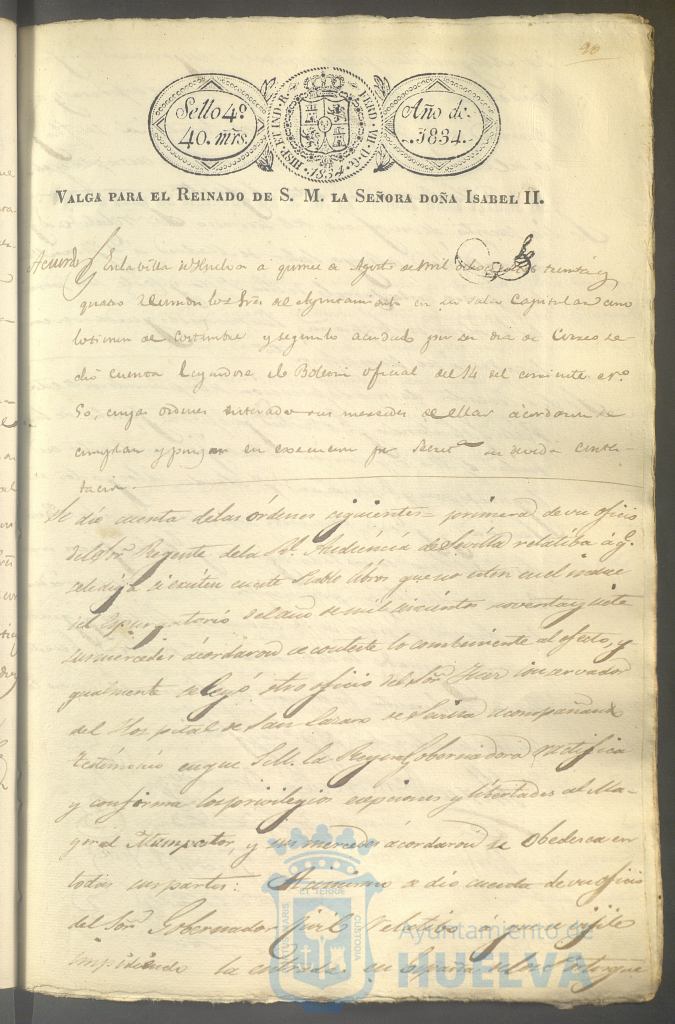 90
Sello 4º
40. mrs.
HISP. ET IND. R. FERD. VII. D. G.
1834
Año de
1834.
VALGA PARA EL REINADO DE S. M. LA SEÑORA DOÑA ISABEL II.
Acuerdo
En la villa de Huelva a quince de Agosto de mil ochocientos treinta y
quatro reunidos los Sres del Ayuntamiento en su sala Capitular como
lo tienen de costumbre y segun lo acordado por ser dia de Correo se
dió cuenta leyendose el Boletin oficial del 14 del corriente nº
50, cuyas ordenes enterados sus mercedes de ellas acordaron se
cumplan y pongan en execucion por Secretª su devida contes-
tacion.
Se dio cuenta de las órdenes siguientes = primera de un oficio
del Sor Regente de la Rl Audiencia de Sevilla relatiba á q.
se le diga si existen en este Pueblo libros que no esten en el indice
del Espurgatorio del año de mil setecientos noventa y siete
sus mercedes acordaron se conteste lo combeniente al efecto, y
gualmente se leyó otro oficio del Sor Juez conservador
del Hospital de San Lazaro de Sevilla acompañando
testimonio en que S.M. la Reyna Gobernadora ratifica
y conforma los privilegios exepciones y libertades al Ma-
yoral Mampastor, y sus mercedes acordaron se obedesca en
todas sus partes: Asimismo se dio cuenta de un oficio
del Sor Gobernador Civil relatibo á que se vijile
impidiendo la entrada en España del
Ayuntamiento de
HUELVA